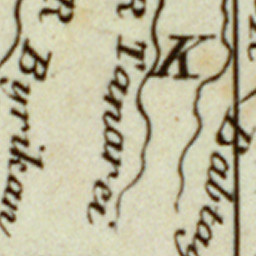 R Byrikan
R Tanarei
K
Babtag